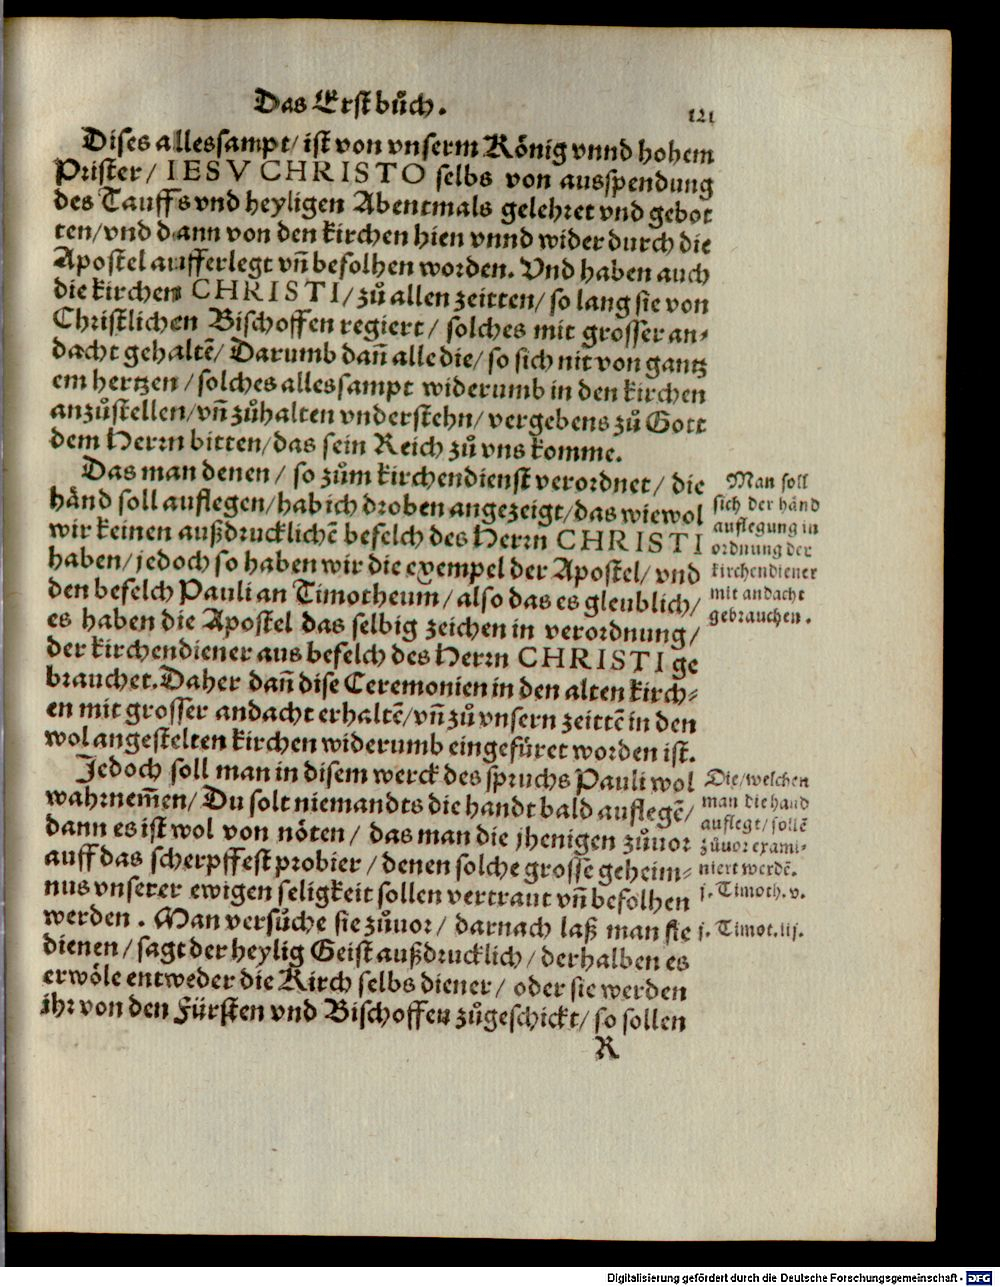 Das Erst bůch.
121
Dises allessampt/ ist von vnserm König vnnd hohem
Prister/ IESV CHRISTO selbs von ausspendung
des Tauffs vnd heyligen Abentmals gelehret vnd gebot
ten/vnd dann von den kirchen hien vnnd wider durch die
Apostel aufferlegt vñ befolhen worden. Vnd haben auch
die kirchen CHRISTI/zů allen zeitten/ so lang sie von
Christlichen Bischoffen regiert/ solches mit grosser an-
dacht gehaltē/ Darumb dañ alle die/ so sich nit von gantz
em hertzen/solches allessampt widerumb in den kirchen
anzůstellen/vñ zůhalten vnderstehn/ vergebens zů Gott
dem Herrn bitten/das sein Reich zů vns komme.
Das man denen/ so zům kirchendienst verordnet/ die
hånd soll auflegen/hab ich droben angezeigt/das wiewol
wir keinen außdrucklichē befelch des Herrn CHRISTI
haben/jedoch so haben wir die exempel der Apostel/ vnd
den befelch Pauli an Timotheum/also das es gleublich/
es haben die Apostel das selbig zeichen in verordnung/
der kirchendiener aus befelch des Herrn CHRISTI ge
brauchet. Daher dañ dise Ceremonien in den alten kirch-
en mit grosser andacht erhaltē/vñ zů vnsern zeittē in den
wol angestelten kirchen widerumb eingefüret worden ist.
Jedoch soll man in disem werck des spruchs Pauli wol
wahrnem̄en/ Du solt niemandts die handt bald auflegē/
dann es ist wol von nöten/ das man die jhenigen zůuor
auff das scherpffest probier/ denen solche grosse geheim-
nus vnserer ewigen seligkeit sollen vertraut vñ befolhen
werden. Man versůche sie zůuor/ darnach laß man sie
dienen/ sagt der heylig Geist außdrucklich/ derhalben es
erwöle entweder die Kirch selbs diener/ oder sie werden
ihr von den Fürsten vnd Bischoffen zůgeschickt/ so sollen
R
Man soll
sich der hånd
auflegung in
ordnung der
kirchendiener
mit andacht
gebrauchen.
Die/welchen
man die hand
auflegt/sollē
zůuor exami-
niert werdē.
j. Timoth. v.
j. Timot. iij.
Digitalisierung gefördert durch die Deutsche Forschungsgemeinschaft - DFG